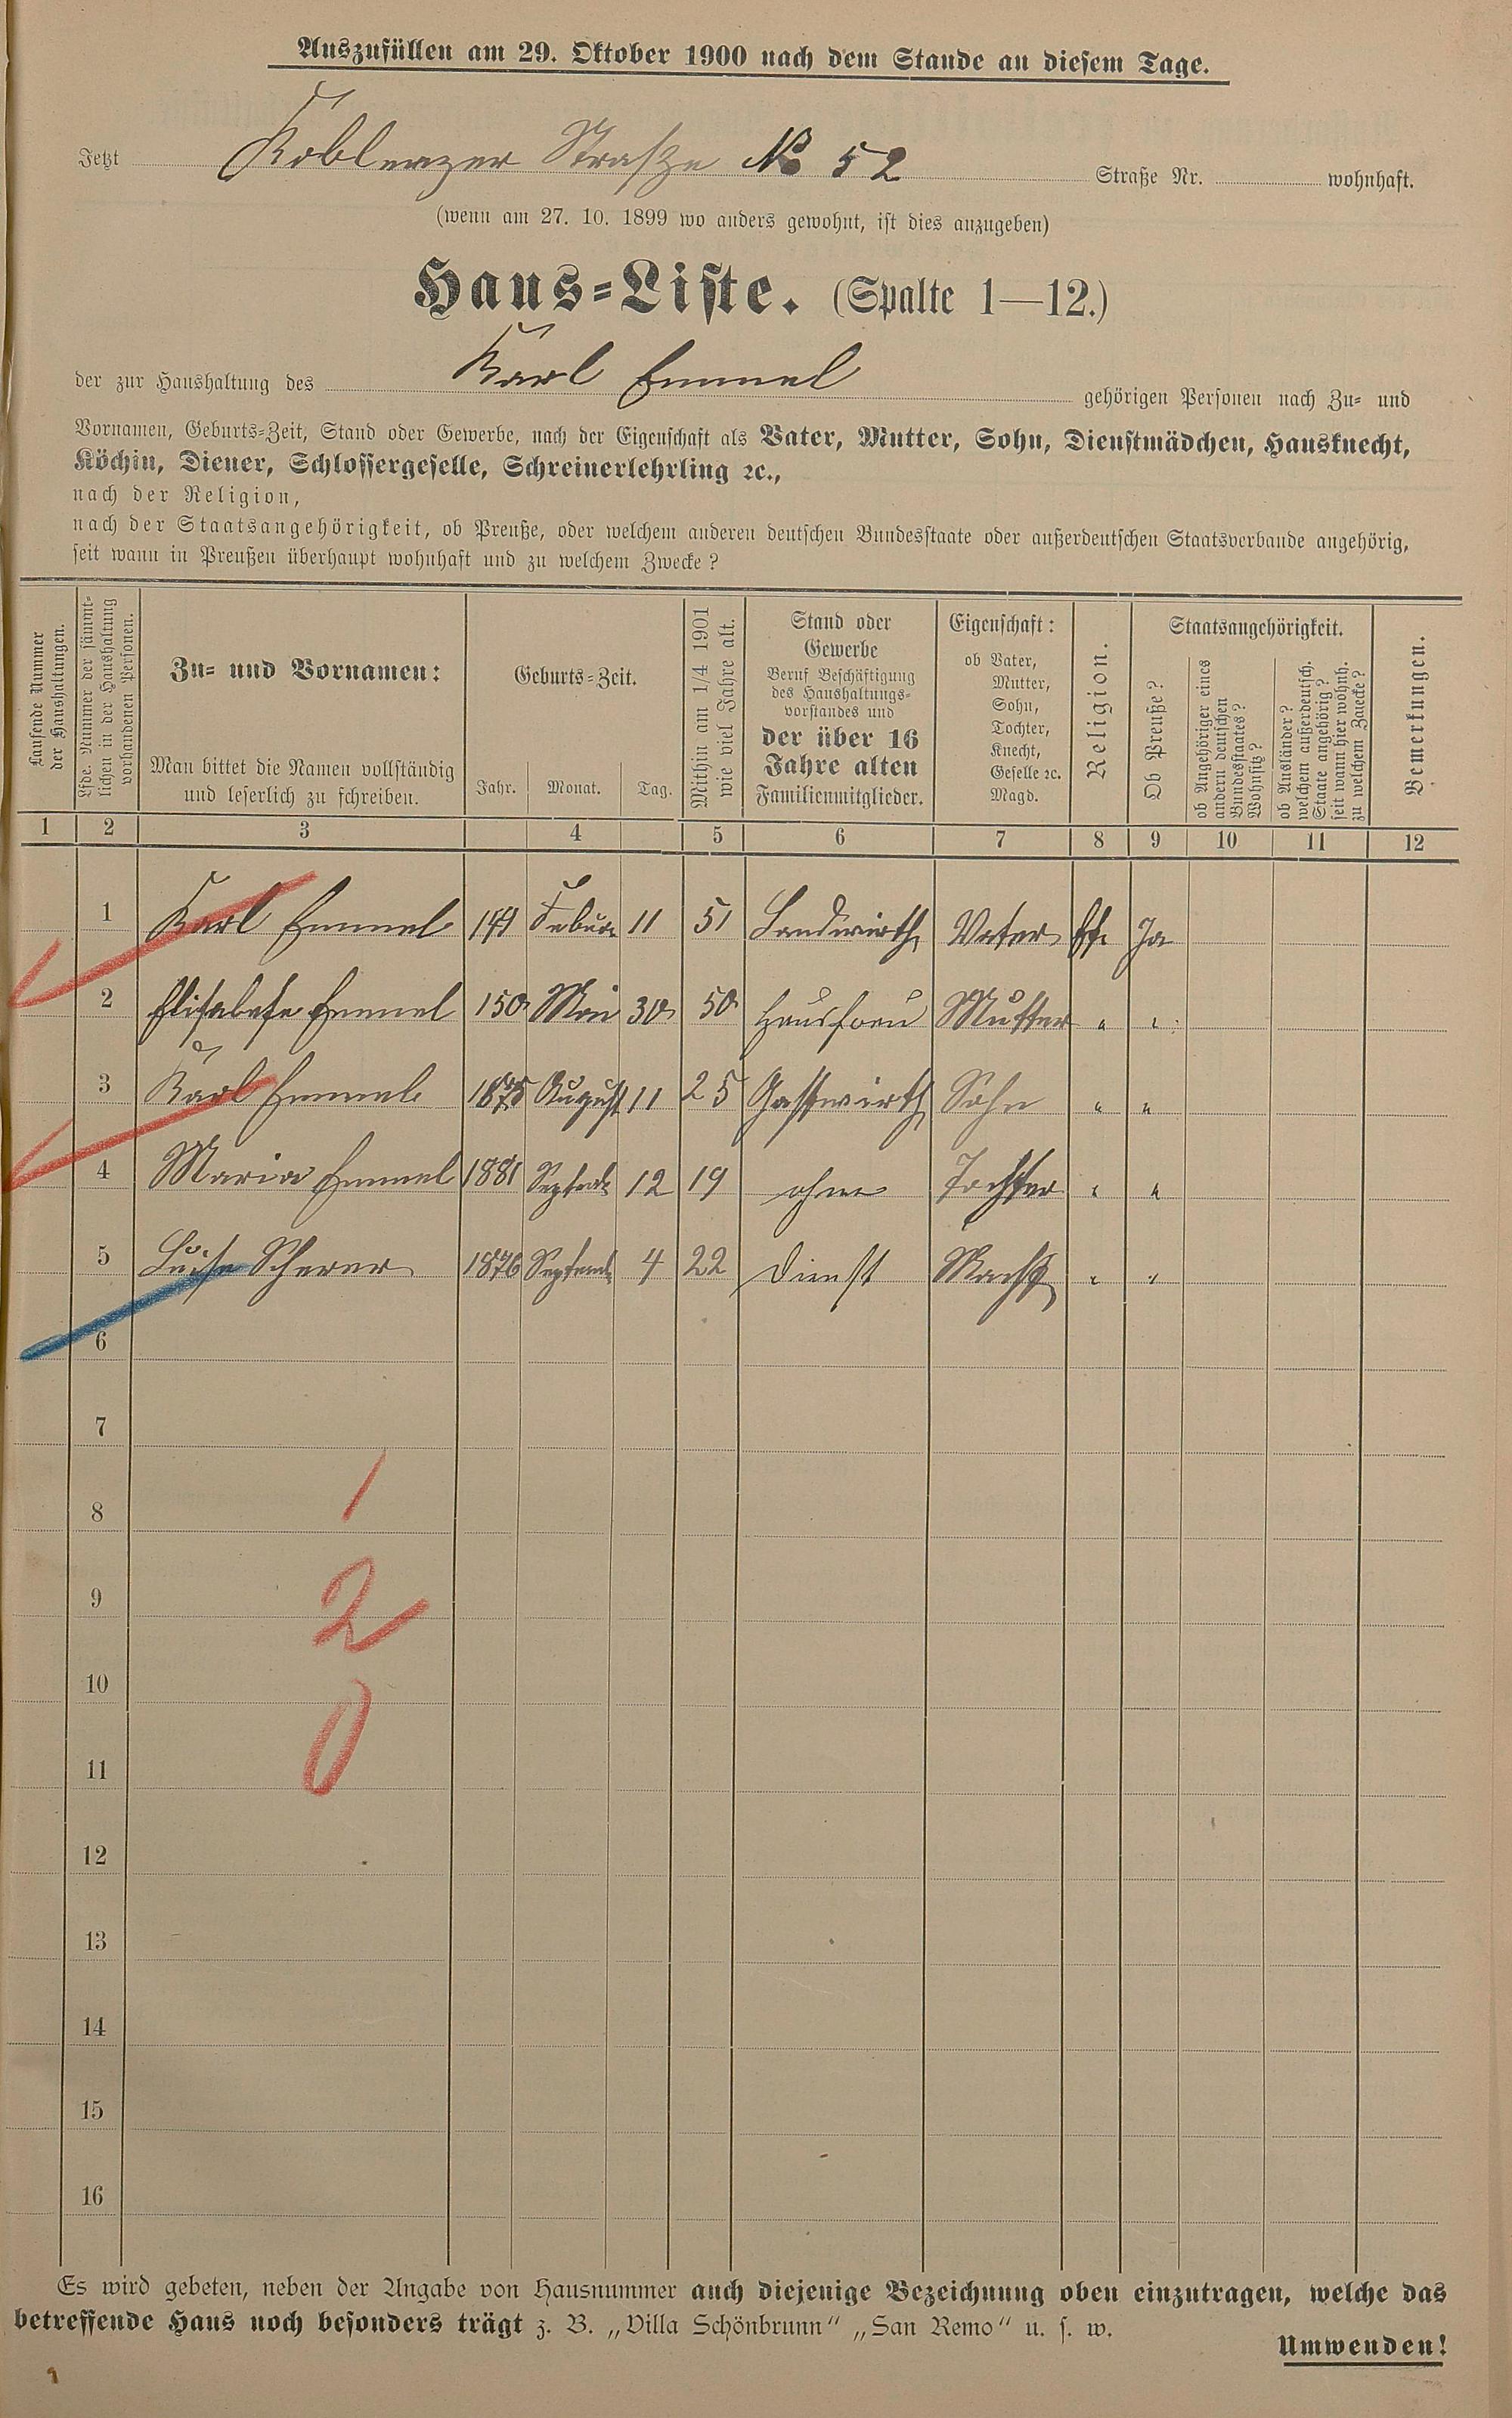 Auszufüllen am 29. Oktober 1900 nach dem Stande an diesem Tage.
Jetzt Koblenzer Straße No 52 Straße Nr. wohnhaft.
(wenn am 27. 10. 1899 wo anders gewohnt, ist dies anzugeben)
Haus-Liste. (Spalte 1—12.)
der zur Haushaltung des Karl Emmel gehörigen Personen nach Zu- und
Vornamen, Geburts-Zeit, Stand oder Gewerbe, nach der Eigenschaft als Vater, Mutter, Sohn, Dienstmädchen, Hausknecht,
Köchin, Diener, Schlossergeselle, Schreinerlehrling ꝛc.,
nach der Religion,
nach der Staatsangehörigkeit, ob Preuße, oder welchem anderen deutschen Bundesstaate oder außerdeutschen Staatsverbande angehörig,
seit wann in Preußen überhaupt wohnhaft und zu welchem Zwecke?
Laufende Nummer
der Haushaltungen.
Lfde. Nummer der sämmt-
lichen in der Haushaltung
vorhandenen Personen.
Zu- und Vornamen:
Man bittet die Namen vollständig
und leserlich zu schreiben.
Geburts-Zeit.
Jahr. Monat. Tag.
Mithin am 1/4 1901
wie viel Jahre alt.
Stand oder
Gewerbe
Beruf Beschäftigung
des Haushaltungs-
vorstandes und
der über 16
Jahre alten
Familienmitglieder.
Eigenschaft:
ob Vater,
Mutter,
Sohn,
Tochter,
Knecht,
Geselle ꝛc.
Magd.
Religion.
Staatsangehörigkeit.
Ob Preuße?
ob Angehöriger eines
andern deutschen
Bundesstaates?
Wohnsitz?
ob Ausländer?
welchem außerdeutsch.
Staate angehörig?
seit wann hier wohnh.
zu welchem Zwecke?
Bemerkungen.
1 2 3 4 5 6 7 8 9 10 11 12
1 Karl Emmel 11 51 Landwirth Vater Ja
2 Elisabethe Emmel 150 Mai 30 50 Hausfrau Mutter " "
3 Karl Emmel 1875 August 11 25 Gastwirth Sohn " "
4 Maria Emmel 1881 Septemb 12 19 ohne Tochter " "
5 Luise Scherer 1876 Septemb 4 22 Dienst " "
6
7
8 1
9 2
10
11 0
12
13
14
15
16
Es wird gebeten, neben der Angabe von Hausnummer auch diejenige Bezeichnung oben einzutragen, welche das
betreffende Haus noch besonders trägt z. B. „Villa Schönbrunn“ „San Remo“ u. s. w.
Umwenden!